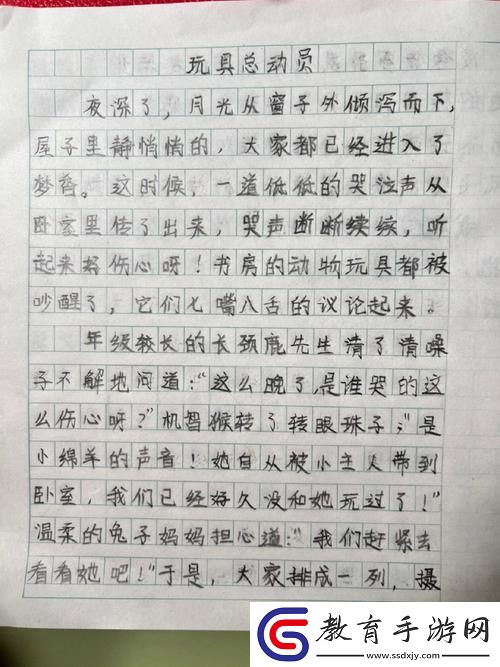 玩具总动员
夜深了，月光从窗子外倾泻而下，
屋子里静悄悄的，大家都已经进入了
梦乡。这时候，一道低低的哭泣声从
卧室里传了出来，哭声断断续续，听
起来好伤心呀！书房的动物玩具都被
吵醒了，它们七嘴八舌的议论起来。
年级较长的长颈鹿先生清了清嗓
子不解地问道："这么晚了，是谁哭的这
么伤心呀？"机智猴转了转眼珠子："是
小绵羊的声音！她自从被小主人带到
卧室，我们已经好久没和她玩过了！"
温柔的兔子妈妈担心道："我们赶紧去
看看她吧！"于是，大家排成一列，摄
教育手游网
www.ssdxjy.com